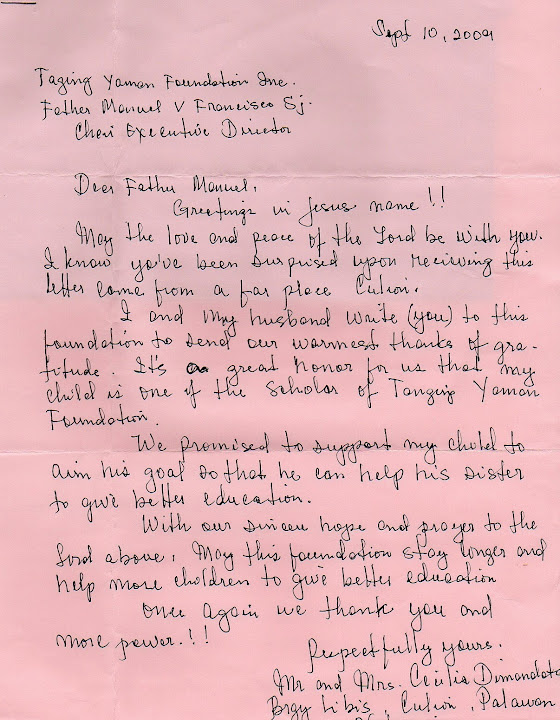 Sept 10, 2009
Taging Yaman Foundation Inc.
Father Manuel V Francisco Sj.
Cheri Executive Director
Dear Father Manuel,
Greetings in Jesus name!!
May the love and peace of the Lord be with you.
I know you've been surprised upon recieving this
letter come from a far place Culion.
I and my husband write (you) to this
foundation to send our warmest thanks of gra-
titude. It's a great honor for us that my
child is one of the scholar of Tanging Yaman
Foundation.
We promised to support my child to
aim his goal so that he can help his sister
to give better education.
With our sincere hope and prayer to the
Lord above, May this foundation stay longer and
help more children to give better education
once again we thank you and
more power.!!!
Respectfully yours.
Mr and Mrs. Cecilia Dimandata
Brgy Libis, Culion, Palawan